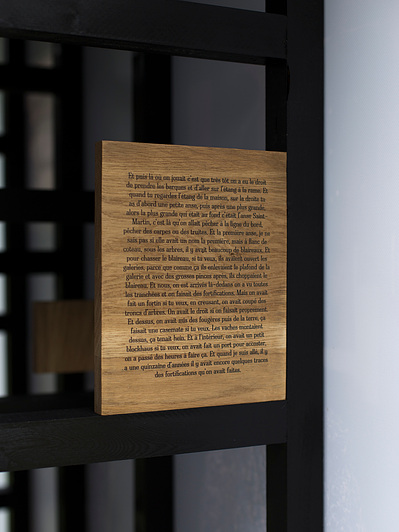 Et puis là où on jouait c'est que très tôt on a eu le droit
de prendre les barques et d'aller sur l'étang à la rame. Et
quand tu regardes l'étang de la maison, sur la droite tu
as d'abord une petite anse, puis après une plus grande,
alors la plus grande qui était au fond c'était l'anse Saint
Martin, c'est là qu'on allait pêcher à la ligne du bord,
pêcher des carpes ou des truites. Et la première anse, je ne
sais pas si elle avait un nom la première, mais à flanc de
coteau, sous les arbres, il y avait beaucoup de blaireaux. Et
pour chasser le blaireau, si tu veux, ils avaient ouvert les
galeries, parce que comme ça ils enlevaient le plafond de la
galerie et avec des grosses pinces après, ils choppaient le
blaireau. Et nous, on est arrivés là-dedans on a vu toutes
les tranchées et on faisait des fortifications. Mais on avait
fait un fortin si tu veux, en creusant, on avait coupé des
troncs d'arbres. On avait le droit si on faisait proprement.
Et dessus, on avait mis des fougères puis de la terre, ça
faisait une casemate si tu veux. Les vaches montaient
dessus, ça tenait bon. Et à l'intérieur, on avait un petit
blockhaus si tu veux, on avait fait un port pour accoster,
on a passé des heures à faire ça. Et quand je suis allé, il y
a une quinzaine d'années il y avait encore quelques traces
des fortifications qu'on avait faites.